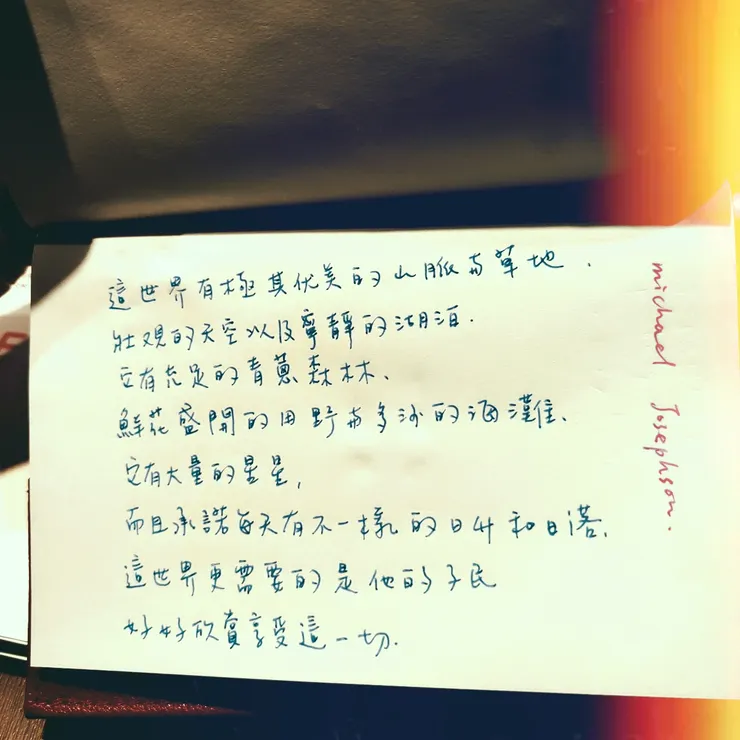 這世界有極其优美的山脈与草地.
壯观的天空以及寧靜的湖泊.
它有充足的青蔥森林、
鮮花盛開的田野与多沙的海灘、
它有大量的星星,
而且承諾每天有不一樣的日升和日落、
這世界更需要的是他的子民
好好欣賞享受這一切.
michael Josephson.